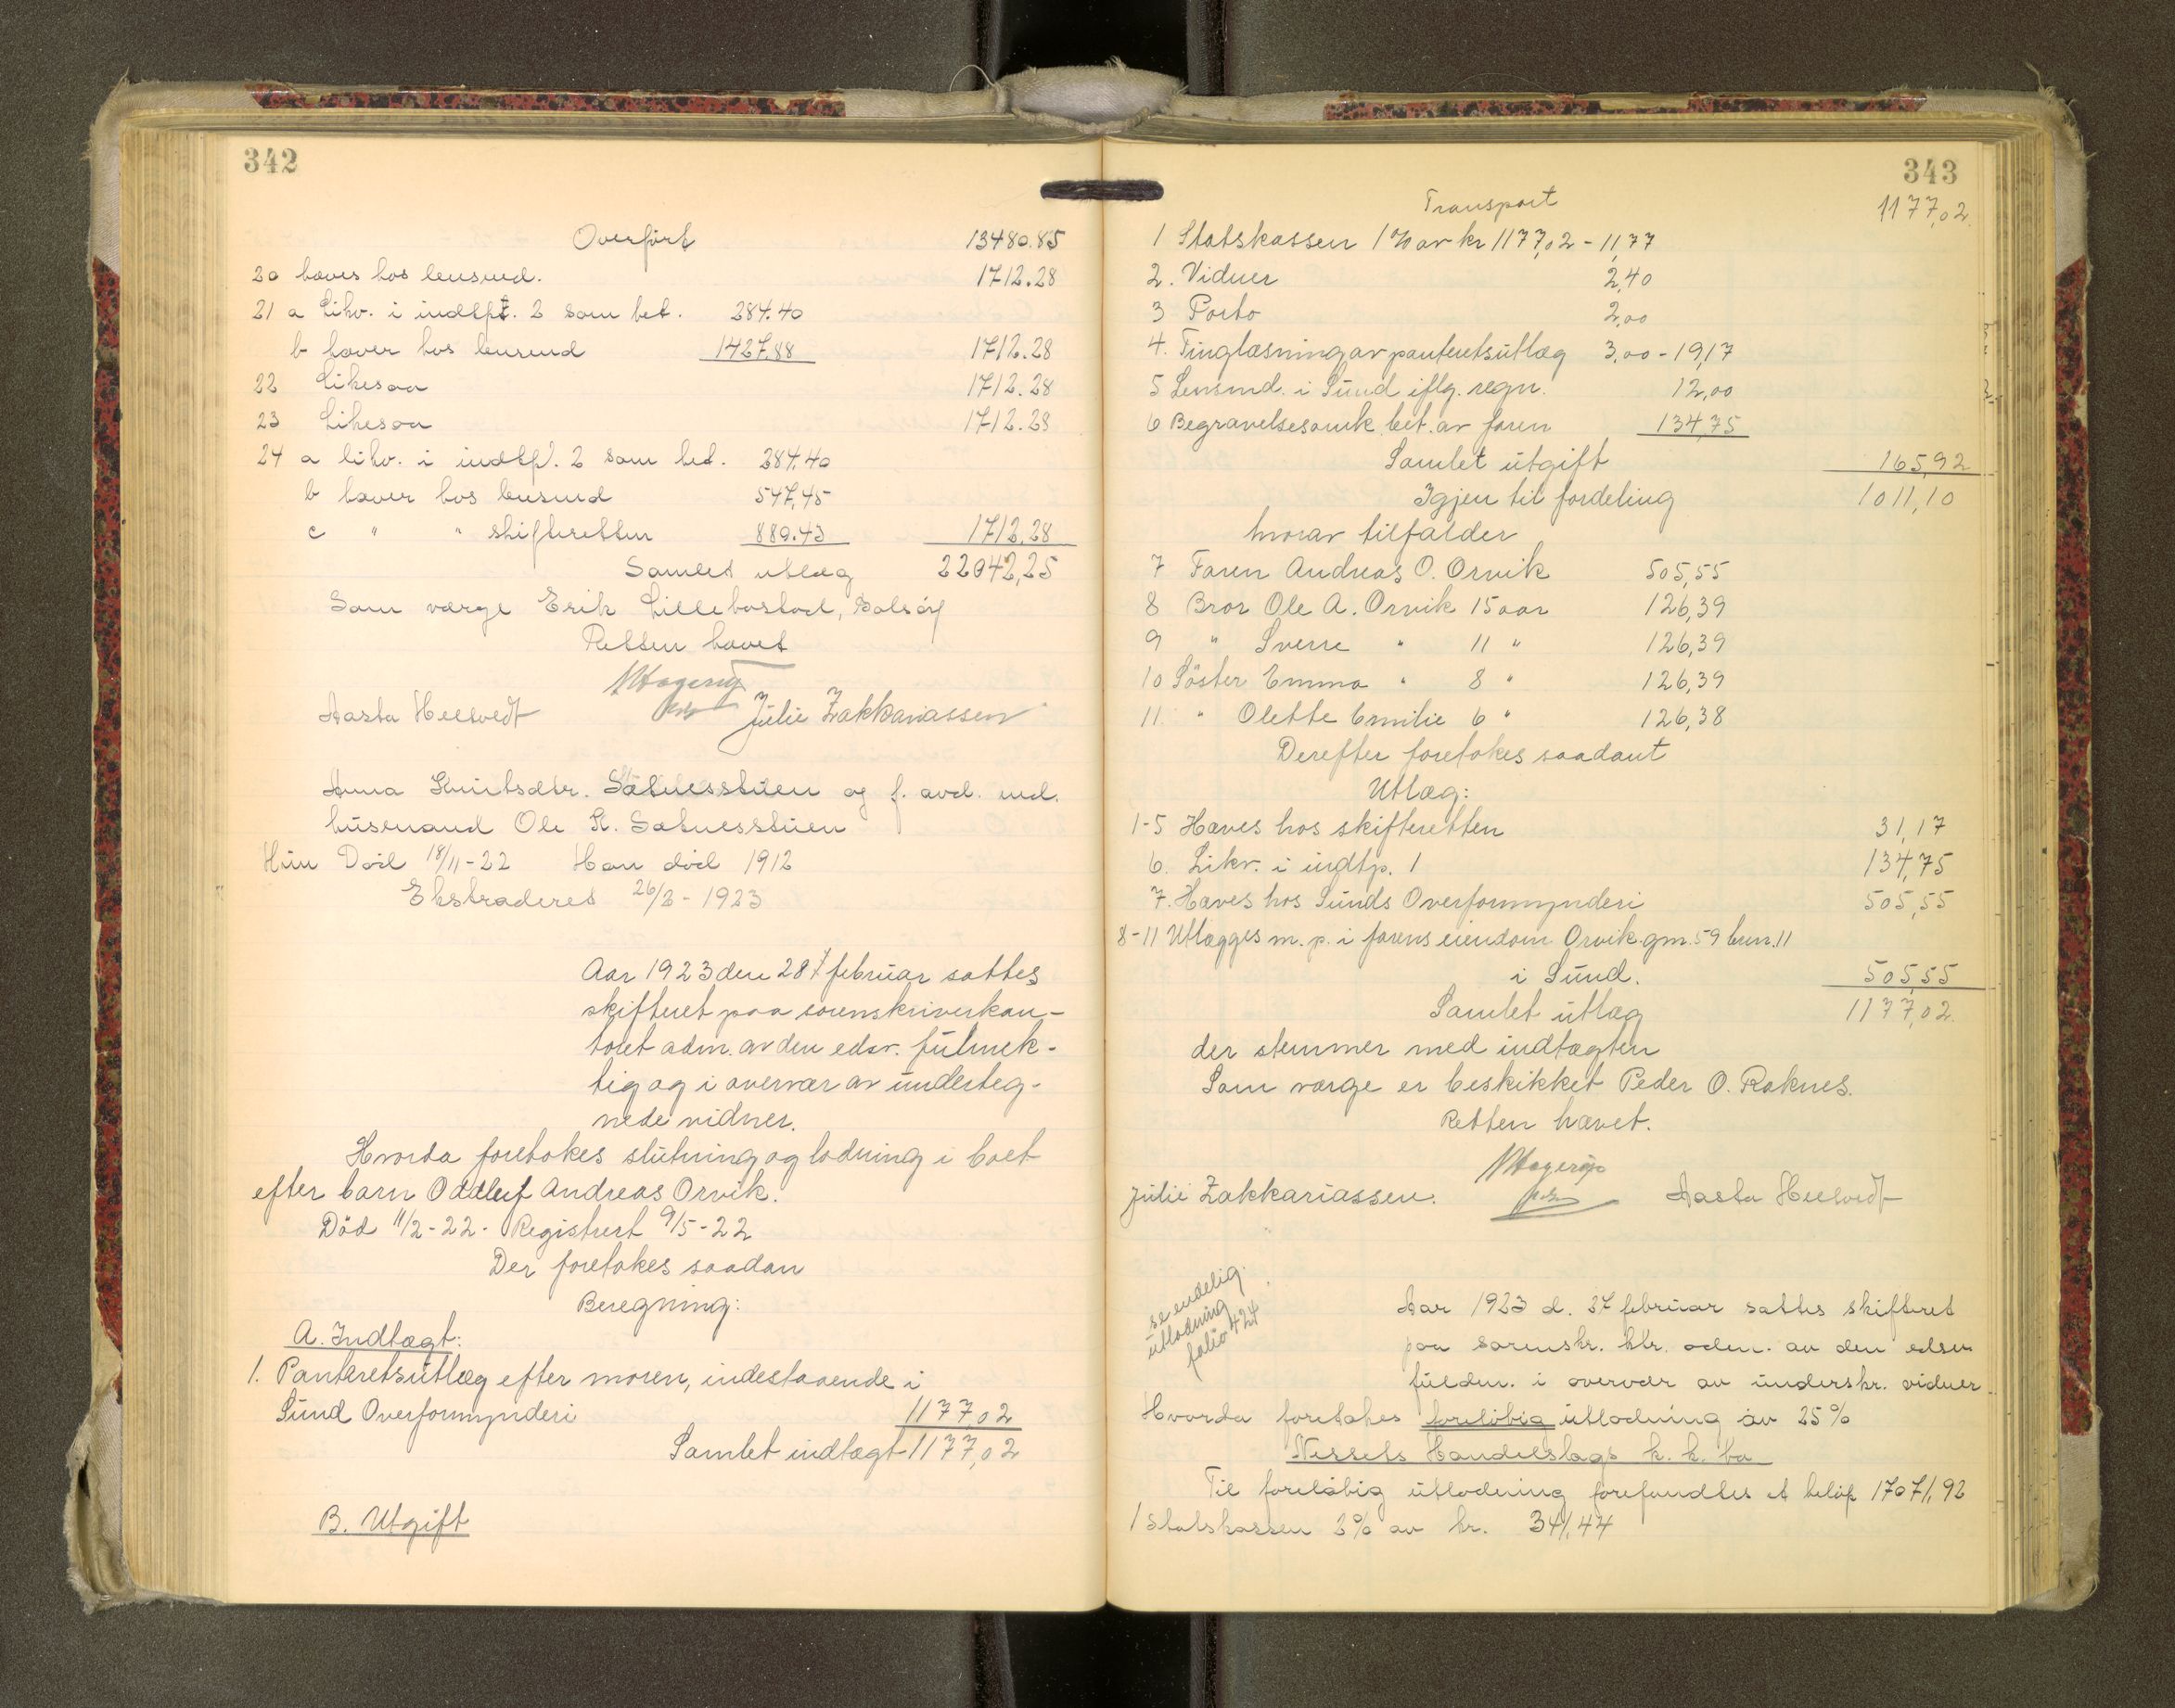 342
Overført 13480.85
20 hæves hos lensmd. 1712.28
21 a Likv. i indtpt. 2 som bet. 284.40
b hæver hos lensmd 1427,88 1712.28
22 Likesaa 1712.28
23 Likesaa 1712.28
24 a likv. i indtp. 2 som bet. 284.40
b hæver hos lensmd 547,45
c " " skifteretten 880.43 1712,28
Samlet utlæg 22042,25
Som værge Erik Lillebostad,
Retten hævet
Aasta Heltvedt Julie Zakkariassen
Anna Knutsdtr. Sætnesstuen og f. avd. md.
husmand Ole K. Sætnesstuen
Hun Død 18/11-22 Han død 1912
Ekstraderes 26/2-1923
Aar 1923 den 28 februar sattes
skifteret paa sorenskriverkon-
toret adm. av den edsv. fulmek-
tig og i overvær av underteg-
nede vidner.
Hvorda foretokes slutning og lodning i boet
efter barn Oddleif Andreas Orvik.
Död 11/2-22. Registrert 9/5-22
Der foretokes saadan
Beregning:
A. Indtægt:
1. Panteretsutlæg efter moren, indestaaende i
Sund Overformynderi 1177,02
Samlet indtægt 1177,02
B. Utgift
343
Transport 1177,02
1 Statskassen 1% av kr 1177,02 - 11,77
2. Vidner 2,40
3 Porto 2,00
4. Tinglæsning av panteretsutlæg 3,00 - 19,17
5 Lensmd. i Sund iflg. regn. 12,00
6 Begravelsesomk. bet. av faren 134,75
Samlet utgift 165,92
Igjen til fordeling 1011,10
hvorav tilfalder
7 Faren Andreas O. Orvik 505,55
8 Bror Ole A. Orvik 15 aar 126,39
9 " Sverre " 11 " 126,39
10 Söster Emma " 8 " 126,39
11. " Olette Emilie 6 " 126,38
Derefter foretokes saadant
Utlæg:
1-5 Hæves hos skifteretten 31,17
6. Likv. i indtp. 1 134,75
7. Hæves hos Sunds Overformynderi 505,55
8-11 Utlægges m. p. i farens eiendom Orvik gm. 59 brn. 11
i Sund. 505,55
Samlet utlæg 1177,02.
der stemmer med indtægten
Som værge er beskikket Peder O. Raknes.
Retten hævet.
Julie Zakkariassen. Aasta Heltvedt
se endelig
utlodning
folio 424
Aar 1923 d. 27 februar sattes skifteret
paa sorenskr. ktr. adm. av den edsv
fuldm. i overvær av underskr. vidner
Hvorda foretokes foreløbig utlodning av 25%
Nessets Handelslags k. k. bo
Til foreløbig utlodning forefandtes et beløp 17071,92
1 Statskassen 2% av kr. 341,44